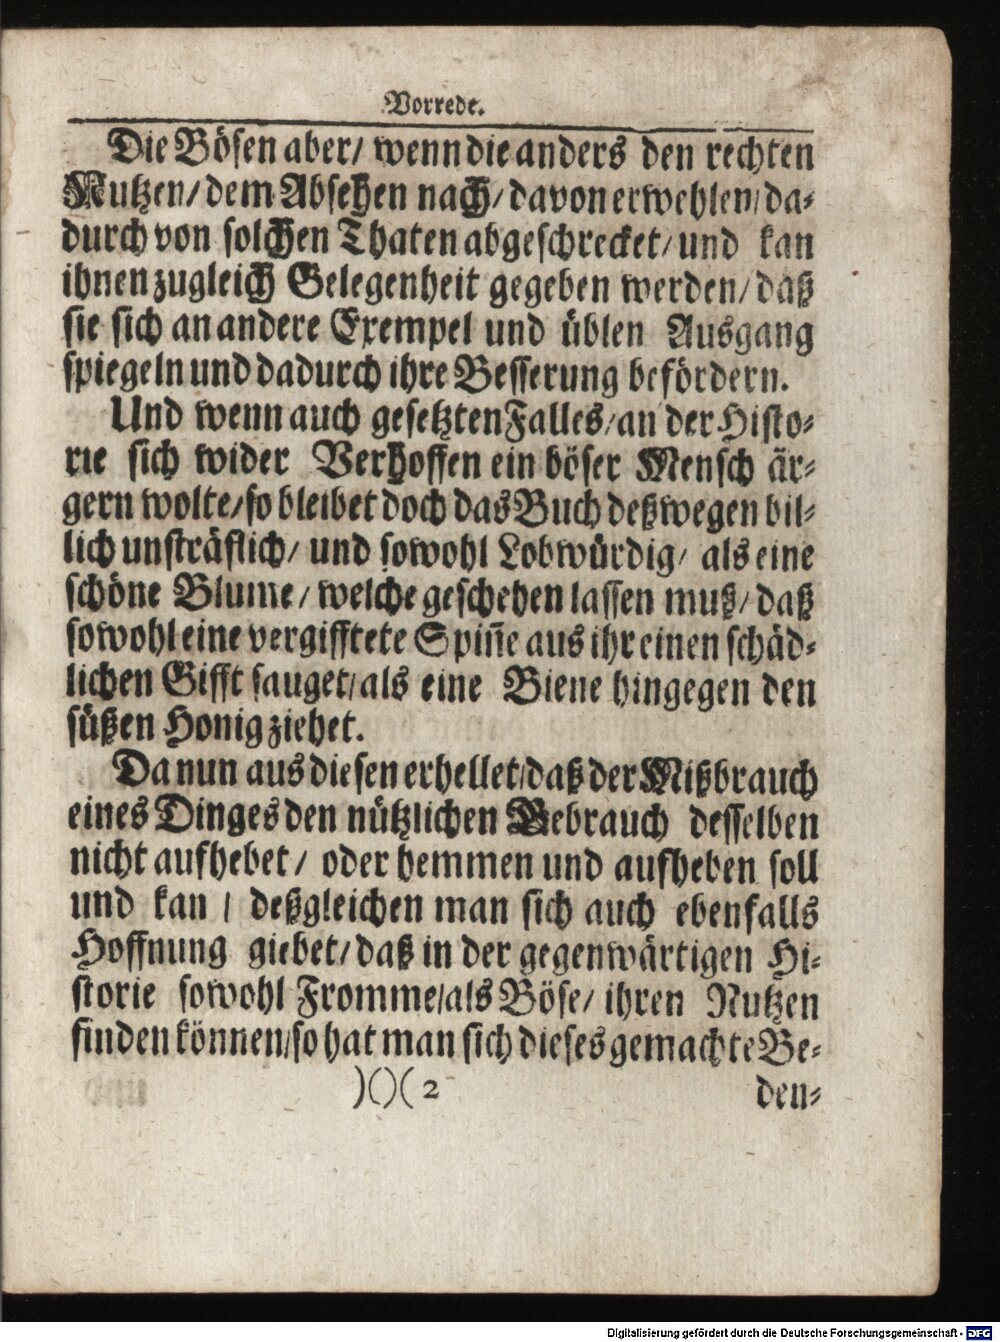 Vorrede.
Die Bösen aber/ wenn die anders den rechten
Nutzen/ dem Absehen nach/ davon erwehlen/ da-
durch von solchen Thaten abgeschrecket/ und kan
ihnen zugleich Gelegenheit gegeben werden/ daß
sie sich an andere Exempel und üblen Ausgang
spiegeln und dadurch ihre Besserung befördern.
Und wenn auch gesetzten Falles/ an der Histo-
rie sich wider Verhoffen ein böser Mensch är-
gern wolte/ so bleibet doch das Buch deßwegen bil-
lich unsträflich/ und sowohl Lobwürdig/ als eine
schöne Blume/ welche geschehen lassen muß/ daß
sowohl eine vergifftete Spiñe aus ihr einen schäd-
lichen Gifft sauget/ als eine Biene hingegen den
süßen Honig ziehet.
Da nun aus diesen erhellet/ daß der Mißbrauch
eines Dinges den nützlichen Gebrauch desselben
nicht aufhebet/ oder hemmen und aufheben soll
und kan / deßgleichen man sich auch ebenfalls
Hoffnung giebet/ daß in der gegenwärtigen Hi-
storie sowohl Fromme/ als Böse/ ihren Nutzen
finden können/ so hat man sich dieses gemachte Be-
)()( 2 den-
Digitalisierung gefördert durch die Deutsche Forschungsgemeinschaft - DFG